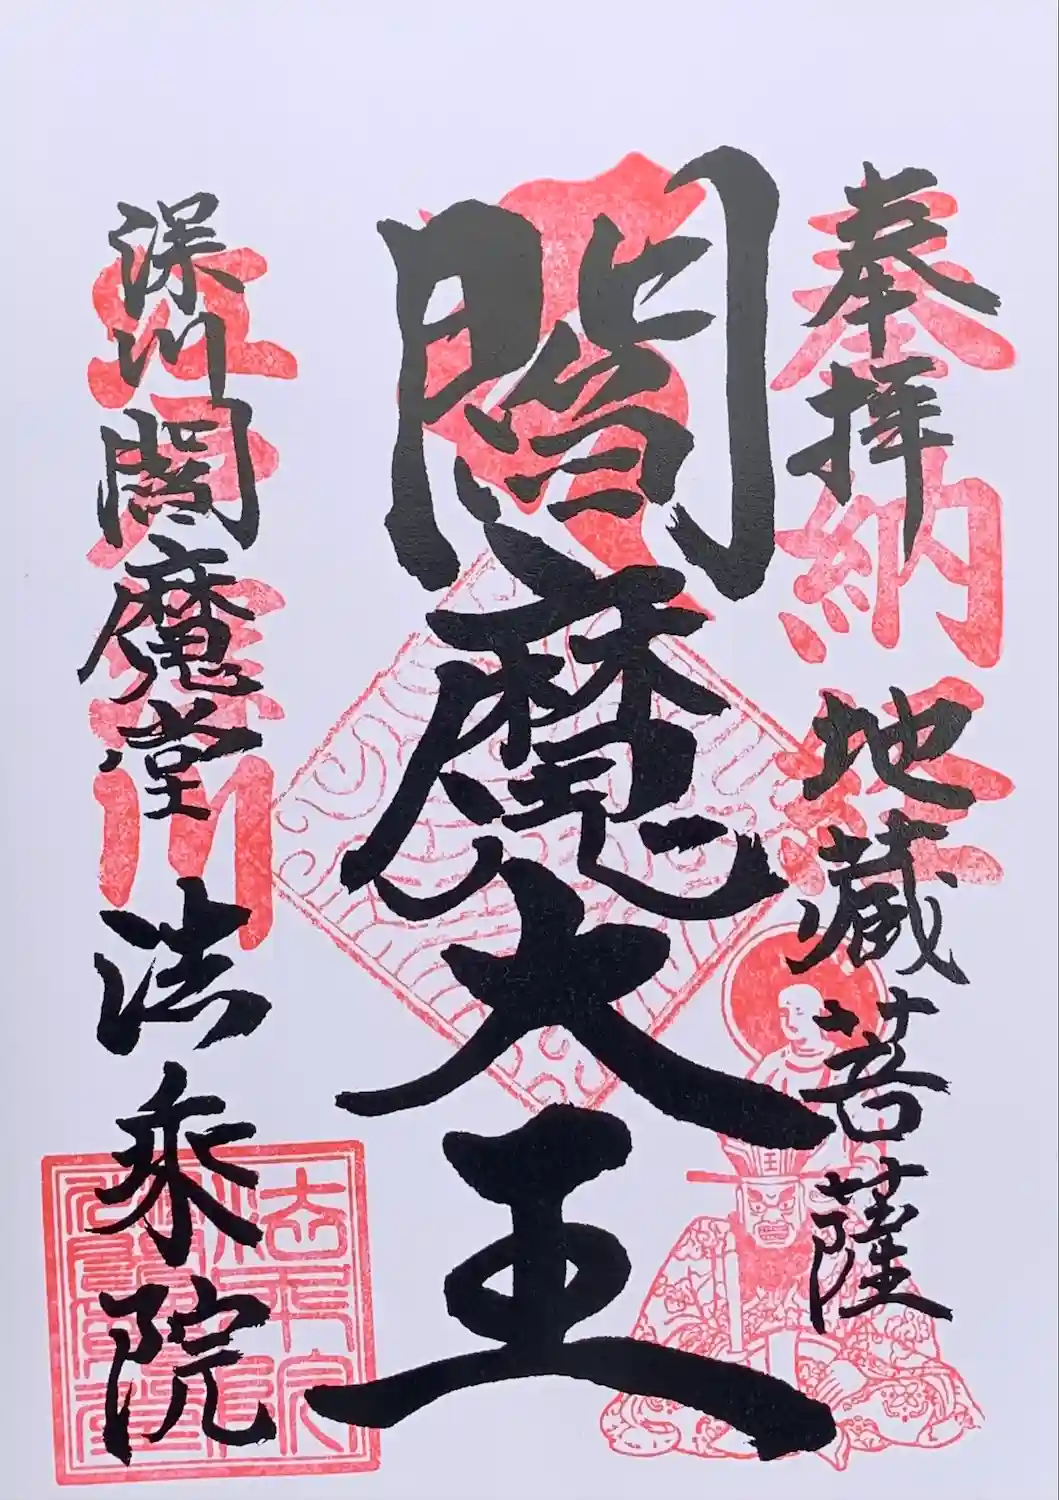 奉拝
奉納経
地蔵菩薩
王
閻魔大王
深川閻魔堂
江戸深川
法乗院